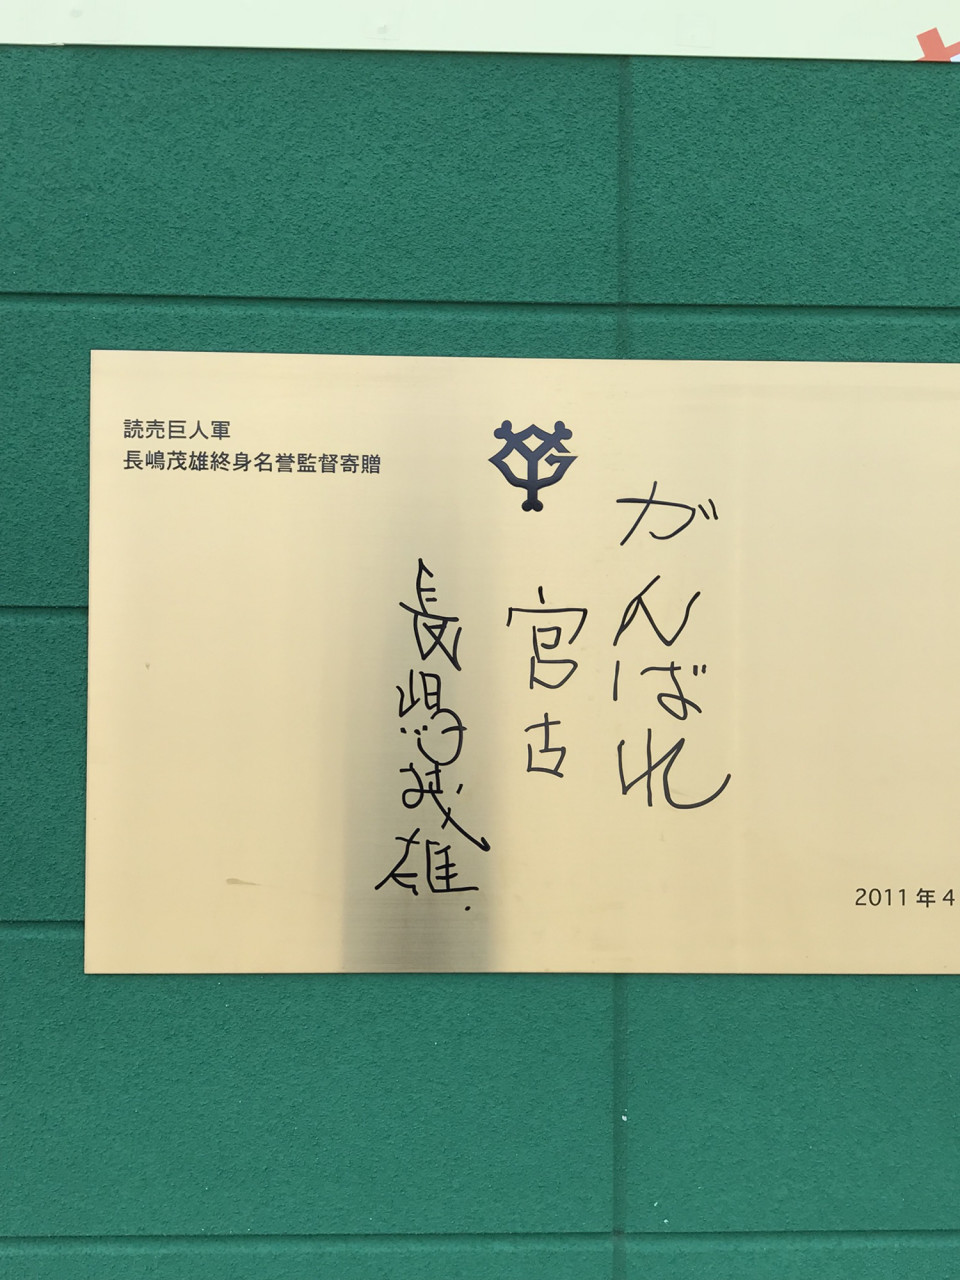 読売巨人軍
長嶋茂雄終身名誉監督寄贈
がんばれ
宮古
長嶋茂雄
2011年4